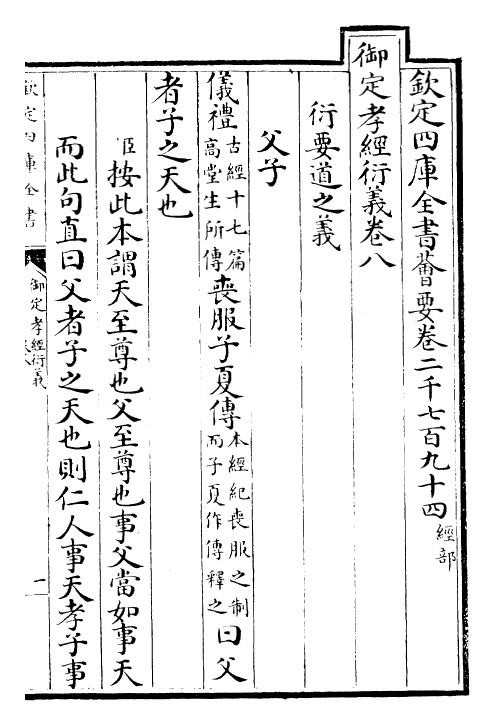 欽定四庫全書薈要卷二千七百九十四經部
御定孝經衍義卷八
衍要道之義
父子
儀禮古經十七篇高堂生所傳喪服子夏傳本經紀喪服之制而子夏作傳釋之曰父
者子之天也
臣按此本謂天至尊也父至尊也事父當如事天
而此句直曰父者子之天也則仁人事天孝子事
欽定四庫全書
御定孝經衍義
卷八
一